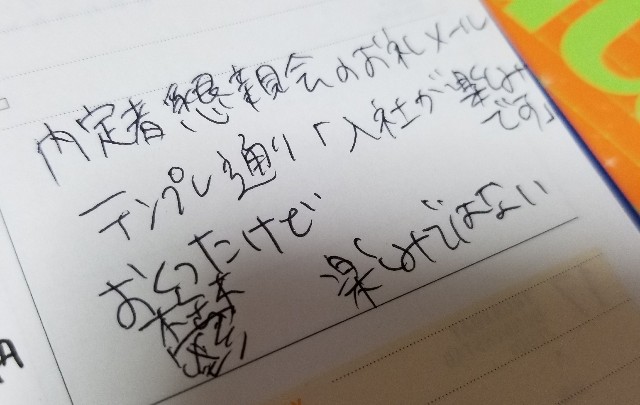 内定者懇親会のお礼メール
テンプレ通り「入社が楽しみです」
おくったけど
楽しみではない